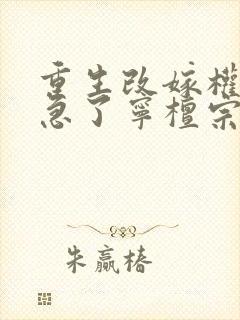 重生改嫁權
急了寧檀宗
朱贏椿